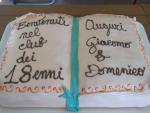 Benvenuti
nel
club
dei
18enni
Auguri
Giacomo
&
Domenico